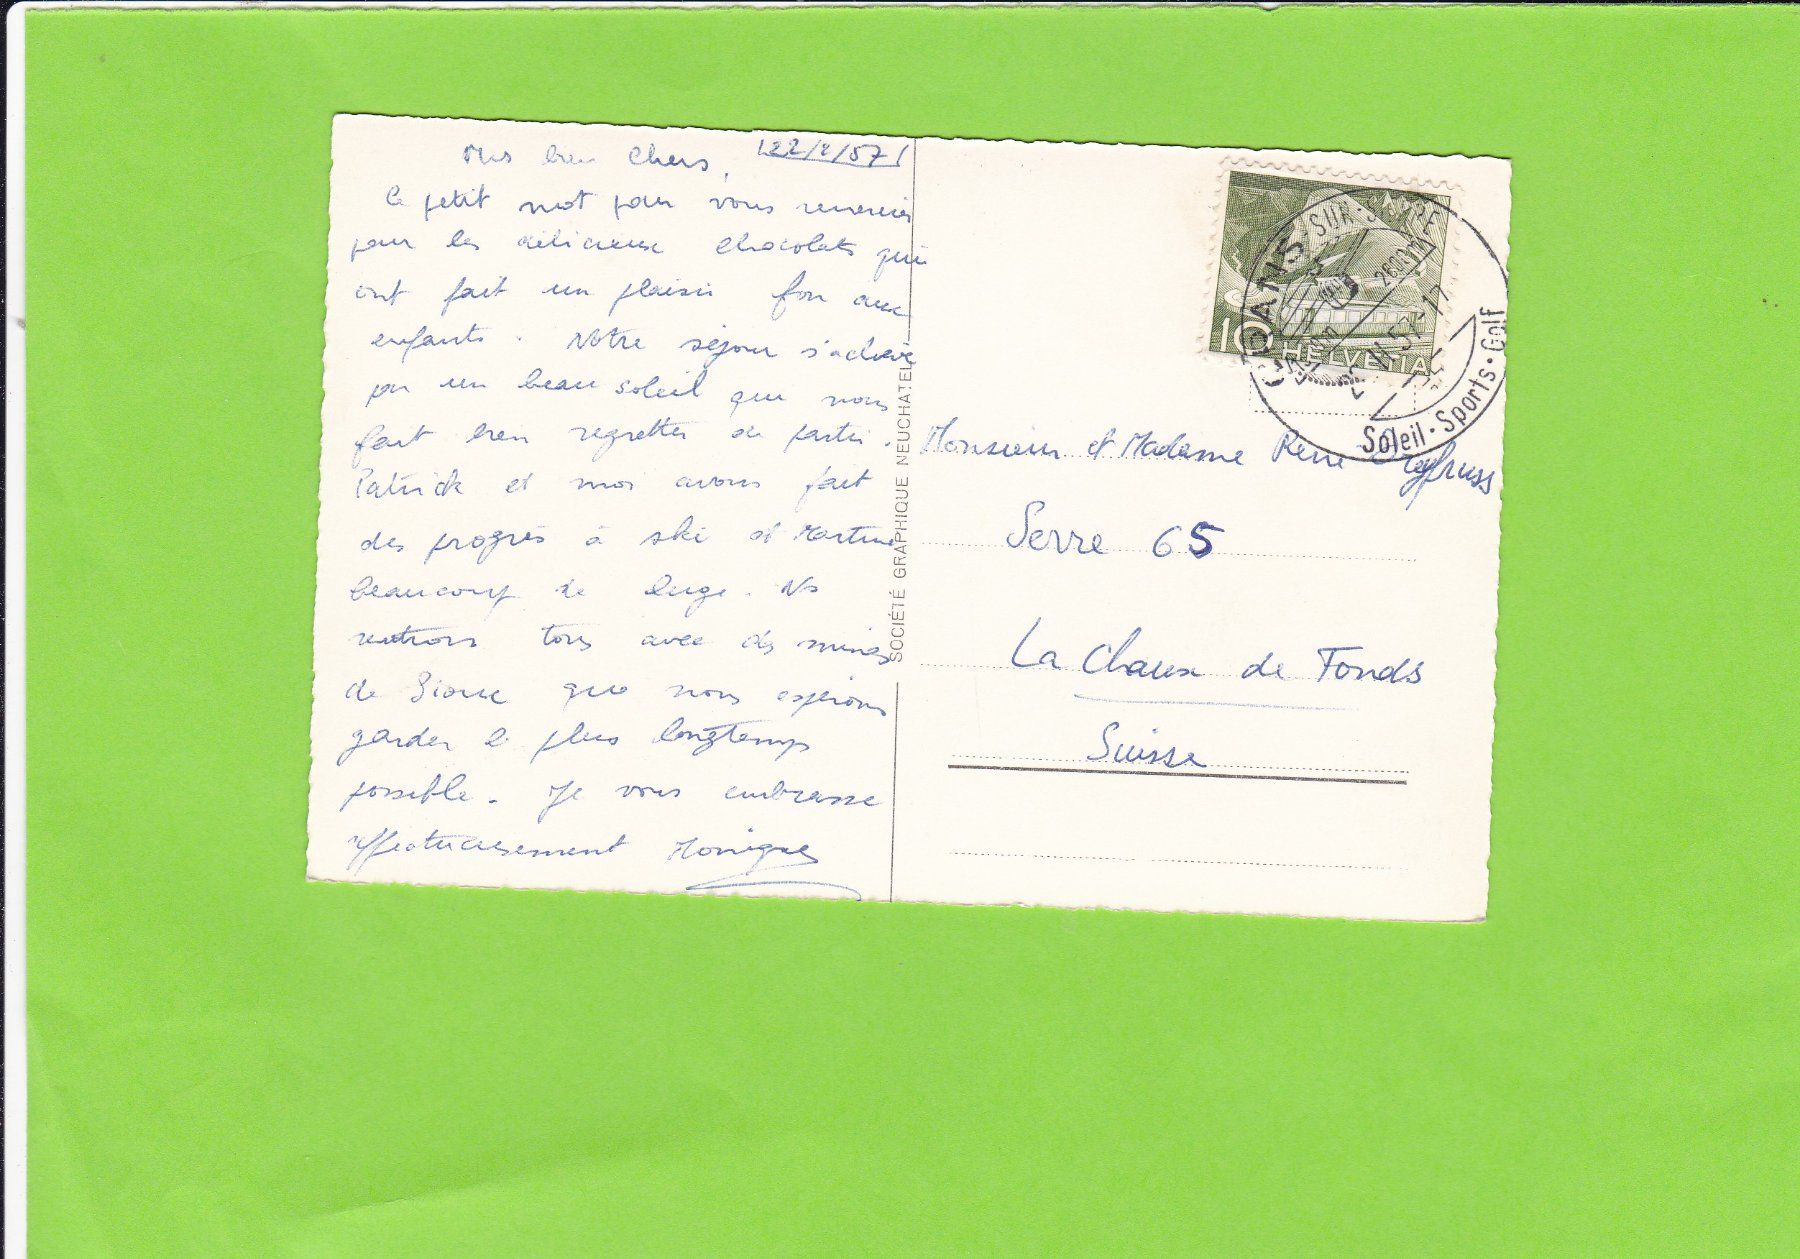 mes bien chers, 22/2/57
Ce petit mot pour vous remercier
pour les délicieux chocolats qui
ont fait un plaisir fou aux
enfants. Notre séjour s'achève
par un beau soleil qui nous
fait bien regretter de partir.
Patrick et moi avons fait
des progrès à ski et Martine
beaucoup de luge. Ns
rentrons tous avec des mines
de Sioux que nous espérons
garder le plus longtemps
possible. Je vous embrasse
affectueusement Monique
SOCIÉTÉ GRAPHIQUE NEUCHATEL
10 HELVETIA
CRANS-SUR-SIERRE
Soleil · Sports · Golf
Monsieur et Madame René Dreyfuss
Serre 65
La Chaux de Fonds
Suisse